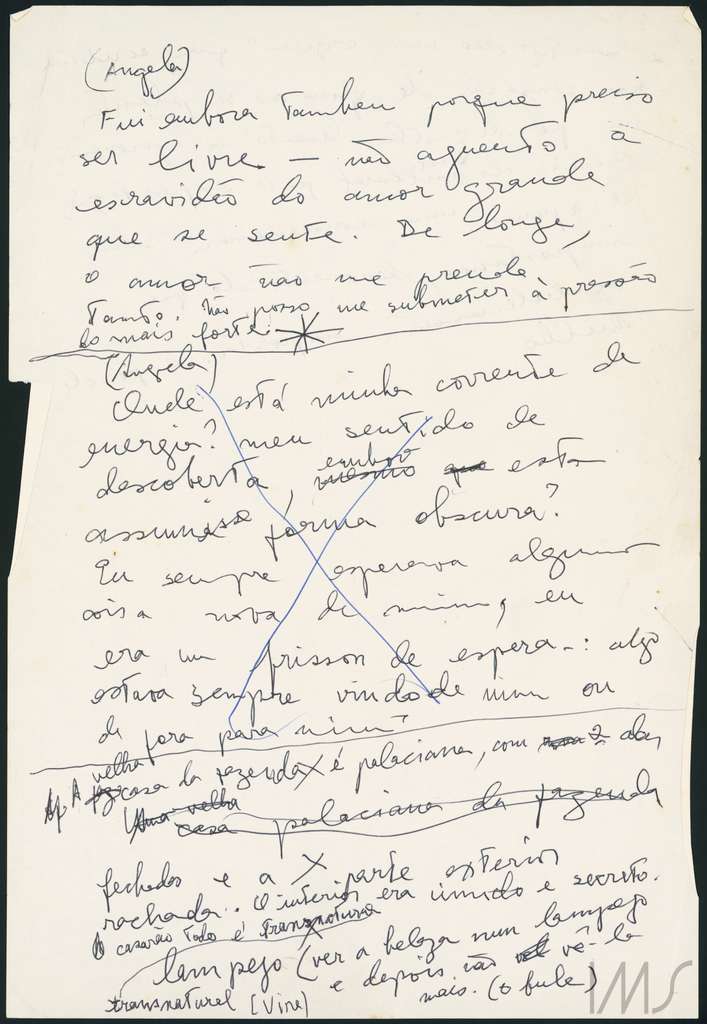 (Angela)
Fui embora tambem porque preciso
ser livre — não aguento a
escravidão do amor grande
que se sente. De longe,
o amor não me prende
tanto. Não posso me submeter à pressão
do mais forte.
(Angela)
Onde está minha corrente de
energia? meu sentido de
descoberta, embora
mesmo que esta
assumisse forma obscura?
Eu sempre esperava alguma
coisa nova de mim, eu
era um frisson de espera –: algo
estava sempre vindo de mim ou
de fora para mim
A velha
casa da fazenda X é palaciana, com 2 alas
Uma velha
casa palaciana da fazenda
fechadas e a X parte exterior
rachada. O interior era úmido e secreto.
O casarão todo é transnatural
lampejo (ver a beleza num lampejo
e depois não vê-la
mais. (o bule)
transnatural [Vire)
IMS